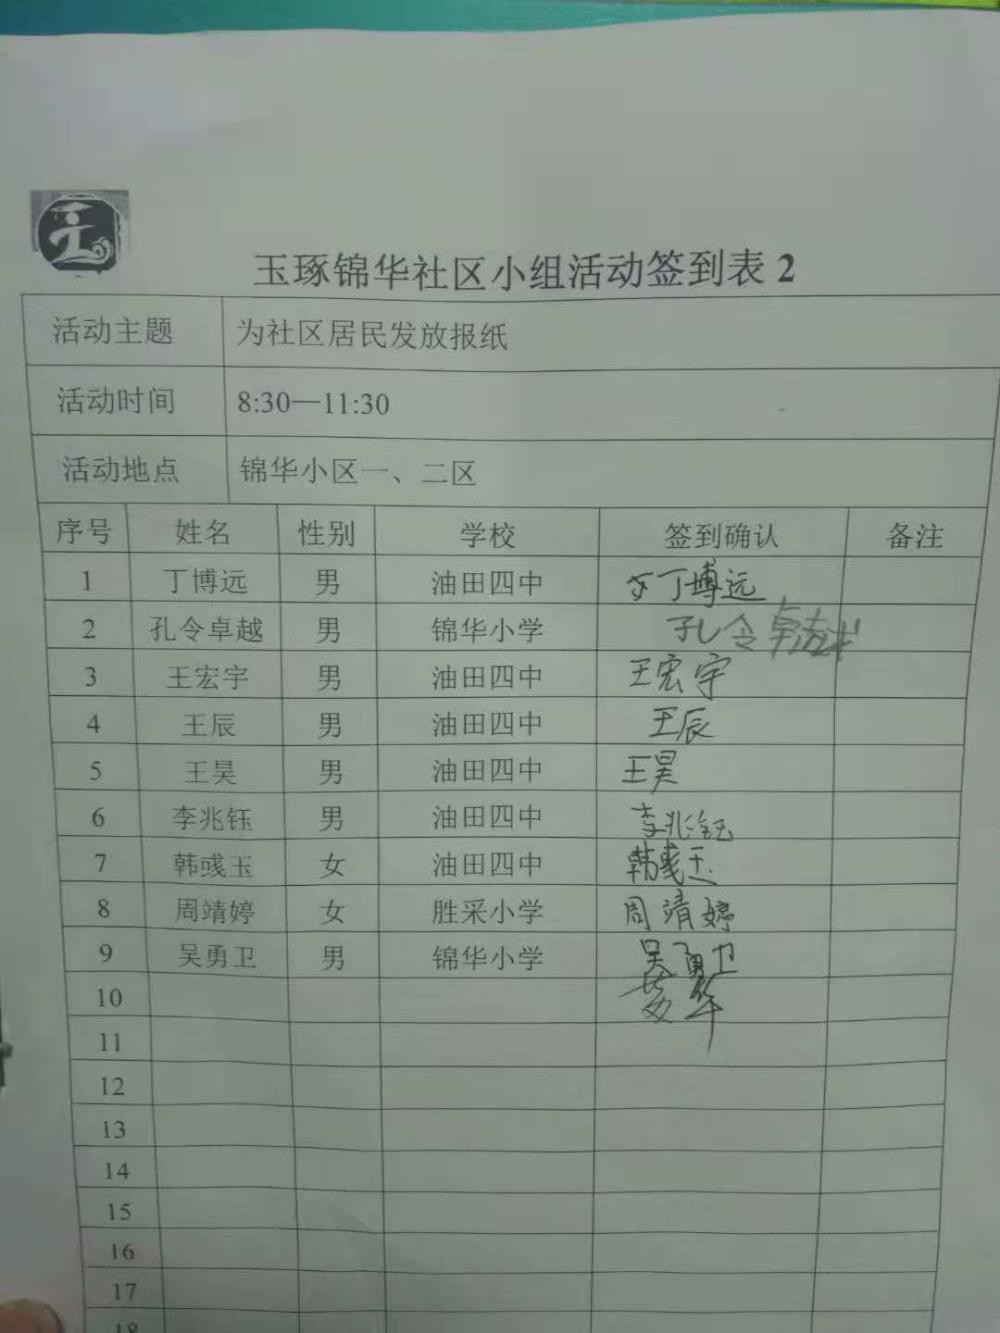 玉琢锦华社区小组活动签到表2
活动主题 为社区居民发放报纸
活动时间 8:30—11:30
活动地点 锦华小区一、二区
序号 姓名 性别 学校 签到确认 备注
1 丁博远 男 油田四中 丁博远
2 孔令卓越 男 锦华小学 孔令卓越
3 王宏宇 男 油田四中 王宏宇
4 王辰 男 油田四中 王辰
5 王昊 男 油田四中 王昊
6 李兆钰 男 油田四中 李兆钰
7 韩彧玉 女 油田四中 韩彧玉
8 周靖婷 女 胜采小学 周靖婷
9 吴勇卫 男 锦华小学 吴勇卫
10
11
12
13
14
15
16
17
18